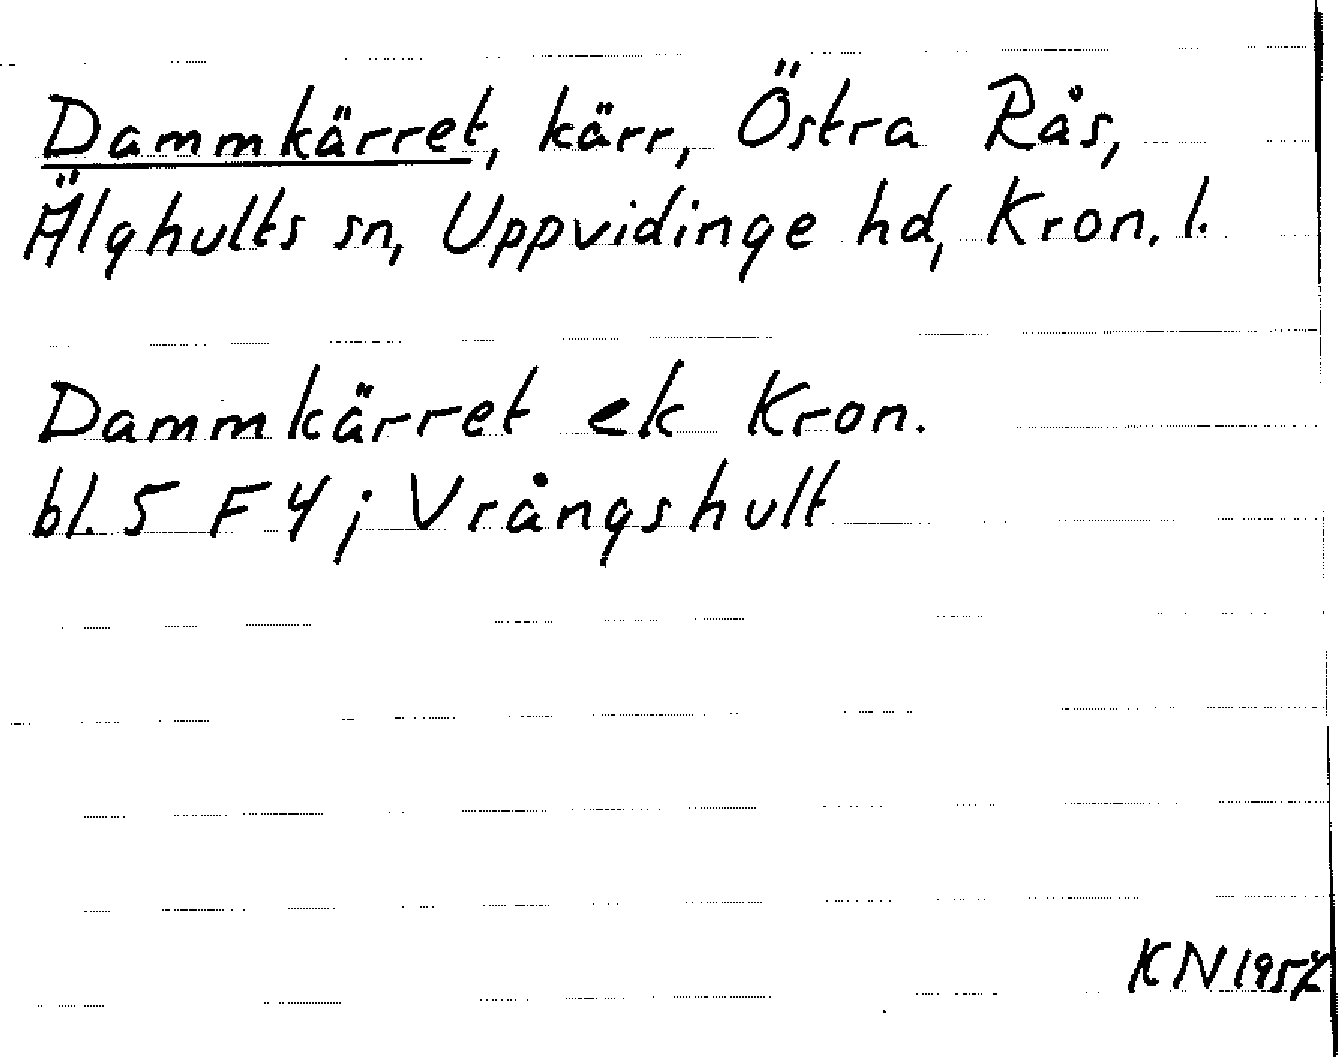 Dammkärret, kärr, Östra Rås,
Älghults sn, Uppvidinge hd, Kron. l.
Dammkärret ek Kron.
bl. 5 F 4 ; Vrångshult
KN 1957